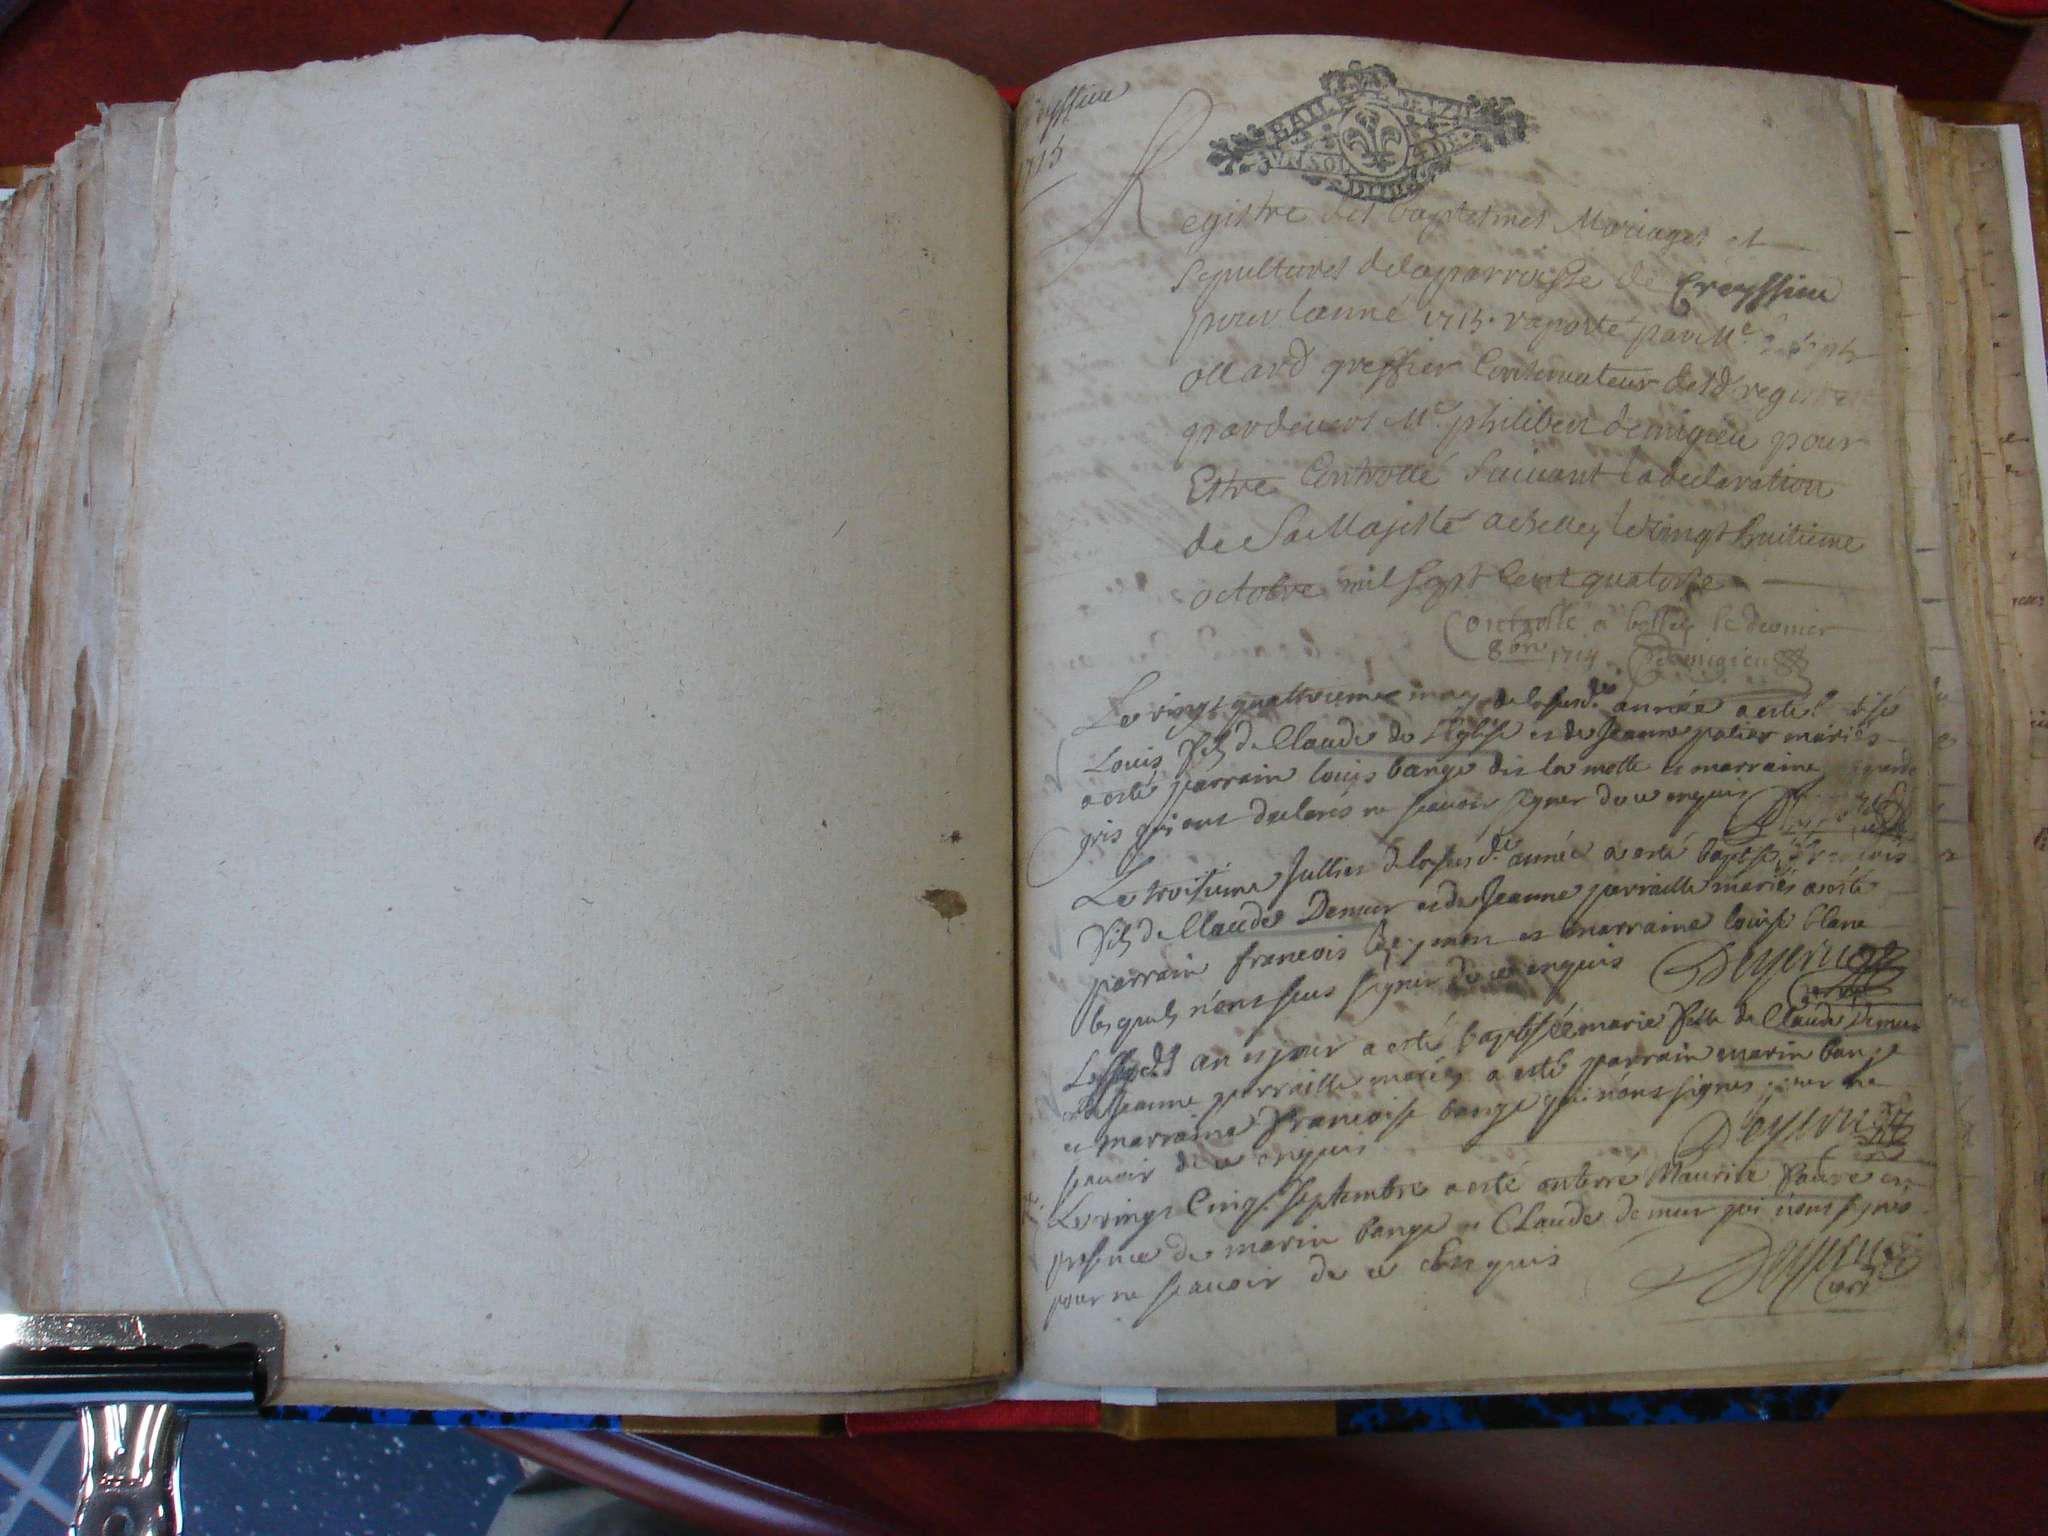 1715
Registre des baptesmes Mariages et
Sepultures delaparroisse de Creyssieu
pour lanné 1715. raporté par Me
ollard greffier Conservateur desd regist
pardevert Me. philibert demigieu pour
Estre Controllé Suivant la declaration
de Sa Majesté a belley le vingt huitieme
octobre mil sept Cent quatorse
Controllé a belley le dernier
8bre 1714 Demigieu
Le vingt quattriesme may de la susde. année a esté
Louis fils de Claude de l'Eglise et de Jeanne palier mariés
a esté parrain louis bange dit la motte et marraine
gris qui ont declarés ne scavoir signer de ce enquis
Le troisieme Jullier de la susde. année a esté baptisé françois
fils de Claude Demur et de Jeanne perraille mariés a esté
parrain francois et marraine louise blanc
lesquels n'ont sceus signer de ce enquis
an et jour a esté baptisée marie fille de Claude Demur
et de Jeanne perraille mariés a esté parrain marin bange
et marraine francoise bange qui n'ont signés pour ne
scavoir de ce enquis
Le vingt Cinq septembre a esté enterré Maurice faure en
presence de marin bange et Claude demur qui n'ont signés
pour ne scavoir de ce Enquis